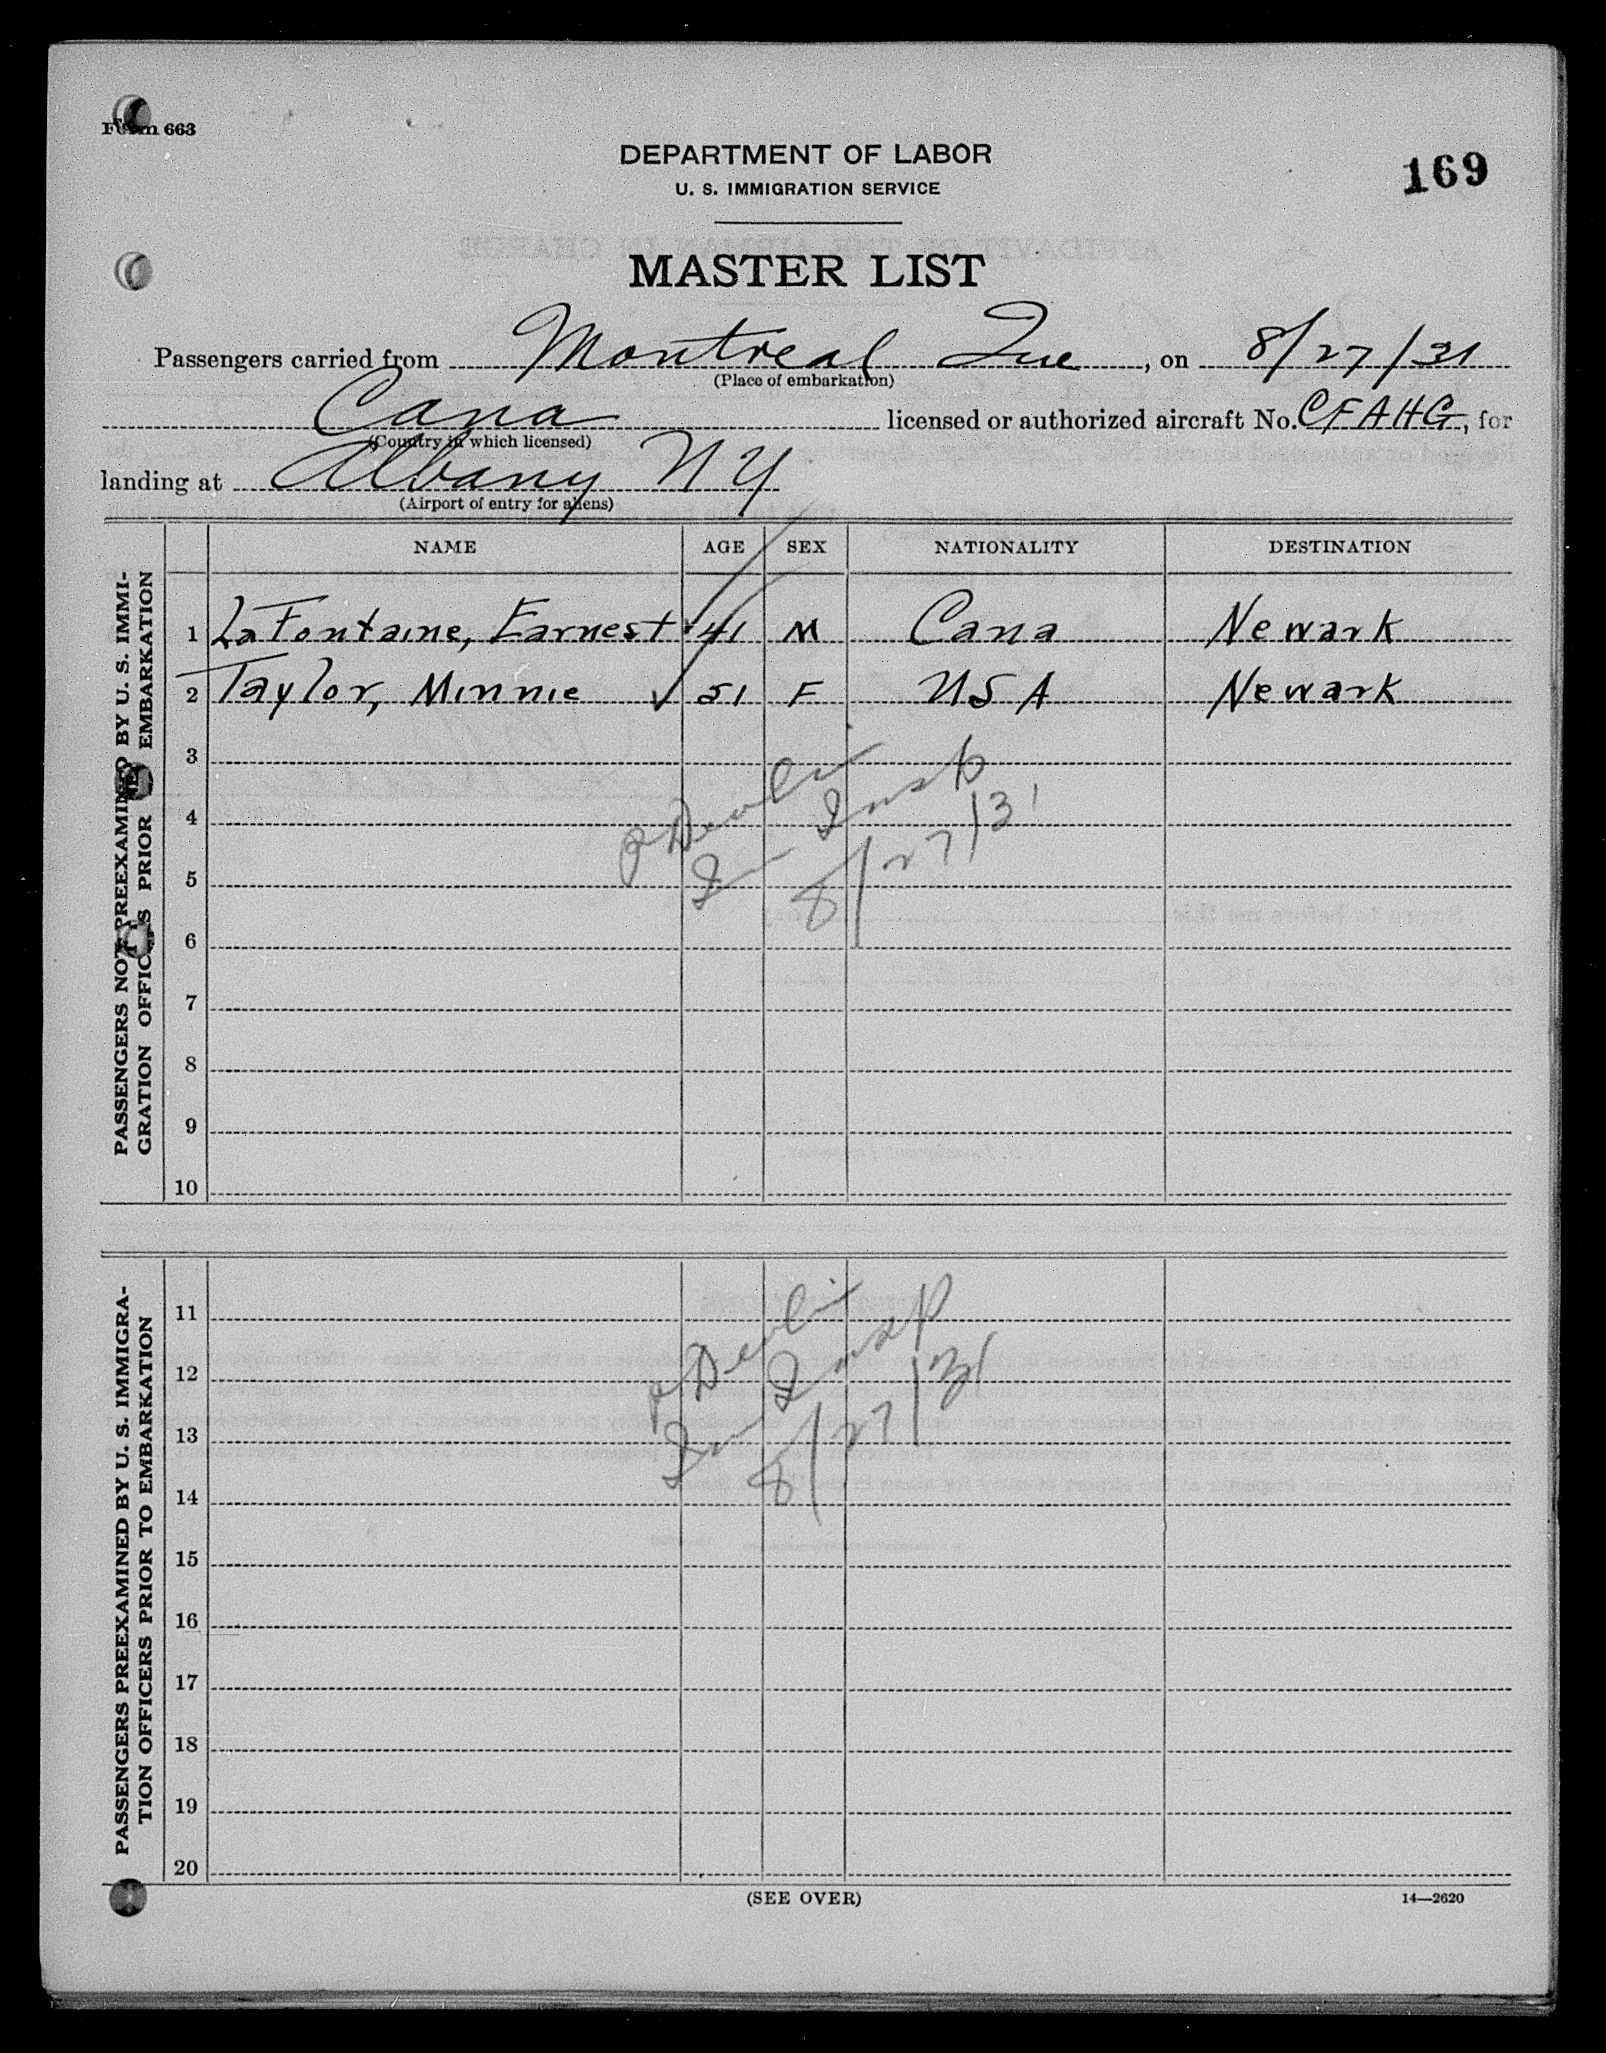 Form 663
169
DEPARTMENT OF LABOR
U. S. IMMIGRATION SERVICE
MASTER LIST
Passengers carried from Montreal Que, on 8/27/31
(Place of embarkation)
Cana licensed or authorized aircraft No. CFAHG, for
(Country in which licensed)
landing at Albany NY
(Airport of entry for aliens)
PASSENGERS NOT PREEXAMINED BY U. S. IMMI-
GRATION OFFICERS PRIOR TO EMBARKATION
NAME AGE SEX NATIONALITY DESTINATION
1 LaFontaine, Earnest 41 M Cana Newark
2 Taylor, Minnie ✓ 51 F USA Newark
3
4
5
6
7
8
9
10
Devlin
Im Insp
8/27/31
PASSENGERS PREEXAMINED BY U. S. IMMIGRA-
TION OFFICERS PRIOR TO EMBARKATION
11
12
13
14
15
16
17
18
19
20
Devlin
Im Insp
8/27/31
(SEE OVER)
14—2620